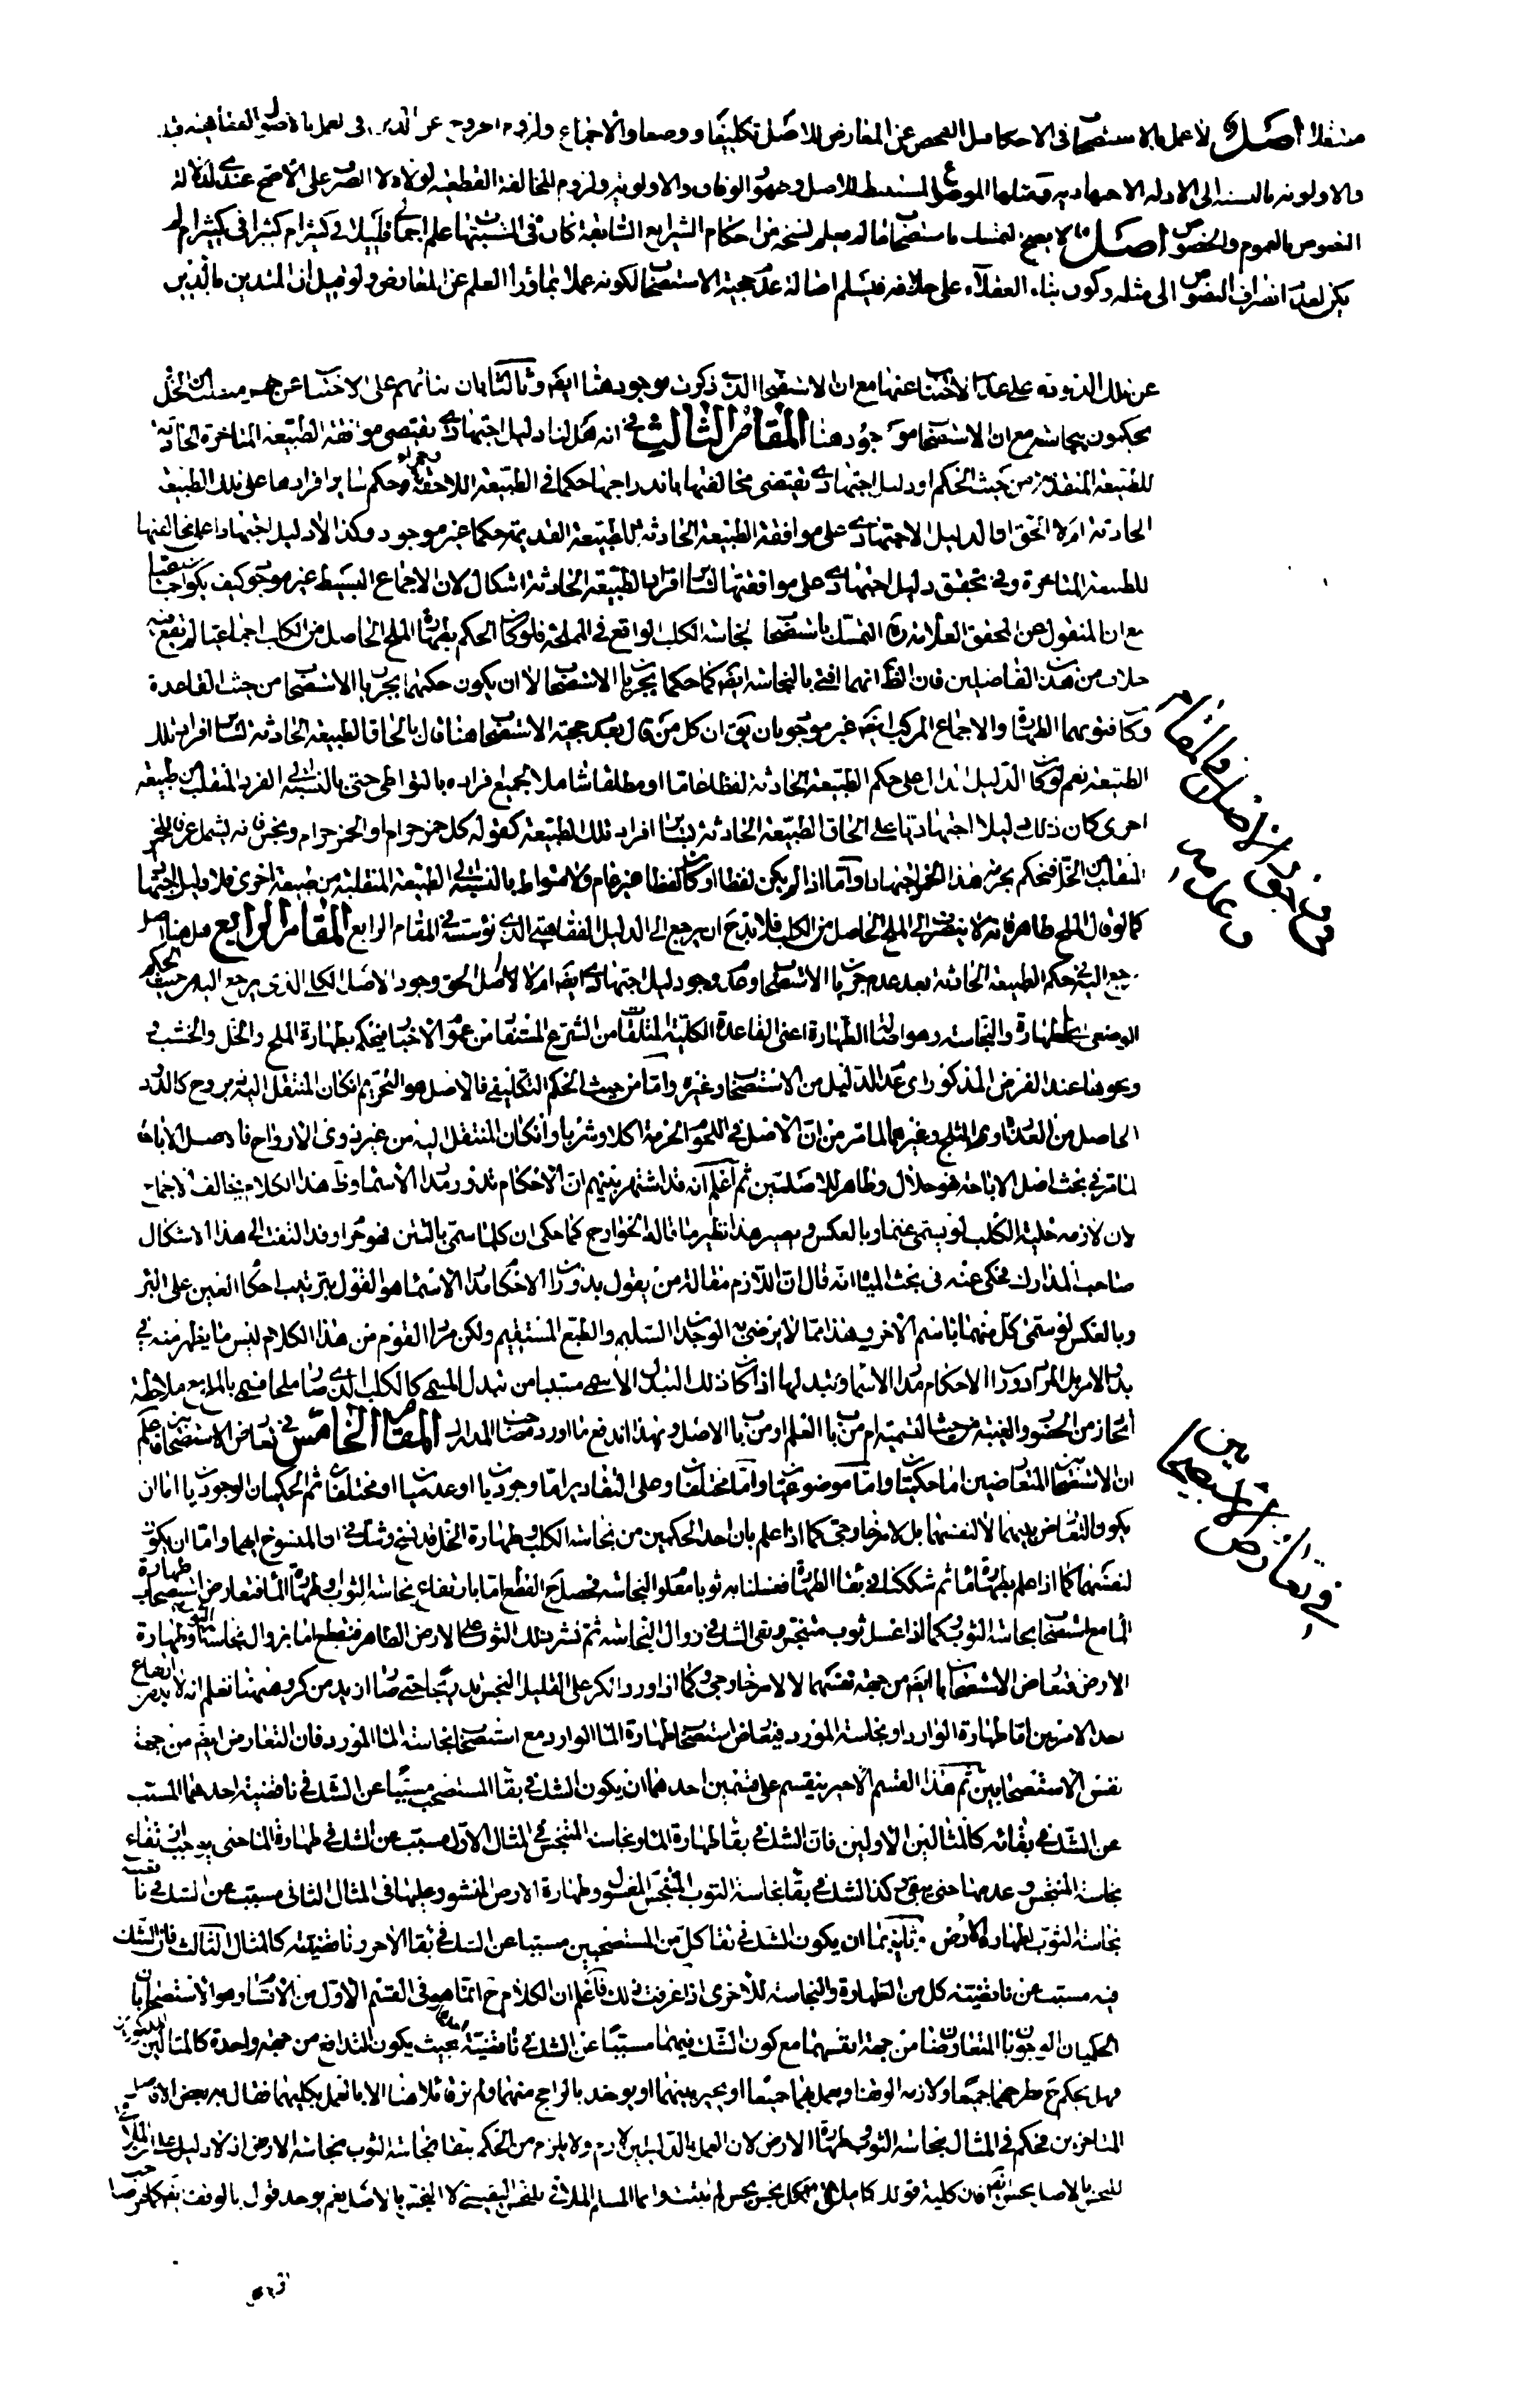 منفلا اصل لا عمل بالاستصحاب فى الاحكام قبل الفحص عن المعارض للاصل تكليفا ووضعا والاجماع ولزوم الخروج عن الدين فى العمل بالاصول الفقاهية
والاولوية بالنسبة الى الادلة الاجتهادية ومثلها الموضوع المستنبط للاصل وجمهور الوفاق والاولوية ولزوم المخالفة القطعية لولاه لا الصرف على الاصح عندى لدلالة
النصوص بالعموم والخصوص اصل لا يصح التمسك باستصحاب ما لم يعلم نسخه من احكام الشرايع السابقة كان فى المنسبتها علم اجمالى قليلا فى كثير ام كثيرا فى كثير ام لم
يكن لعدم انصراف النصوص الى مثله وكون بناء العقلاء على خلافه فيسلم اصالة عدم حجية الاستصحاب لكونه عملا بما وراء العلم عن المعارض ولو قيل ان المتدين بالدين
عن تلك الزوجة على عدم الاجتناب عنها مع ان الاستصحاب الذى ذكرت موجود هنا ايضا وثالثا بان بنائهم على الاجتناب عن خمر منقلب الى الخل
يحكمون بنجاسته مع ان الاستصحاب موجود هنا المقام الثالث فى انه هل لنا دليل اجتهادى يقتضى موافقة الطبيعة المتاخرة الحادثة
للطبيعة المتقدمة من حيث الحكم او دليل اجتهادى يقتضى مخالفتها باندراجها حكما فى الطبيعة اللاحقة وحكم ساير افرادها على تلك الطبيعة
الحادثة ام لا الحق ان الدليل الاجتهادى على موافقة الطبيعة الحادثة للطبيعة القديمة حكما غير موجود وكذا لا دليل اجتهادا على مخالفتها
للطبيعة المتاخرة وفى تحقيق دليل اجتهادى على موافقتها لساير افراد الطبيعة الحادثة اشكال لان الاجماع البسيط غير موجود كيف يكون اجماعيا
مع ان المنقول عن المحقق والعلامة ره التمسك باستصحاب نجاسة الكلب الواقع فى المملحة فلو كان الحكم بطهارة الملح الحاصل من الكلب اجماعيا لم يقع فيه
خلاف من هذين الفاضلين فان الظ انهما افتى بالنجاسة ايضا كما حكما بجريان الاستصحاب لا ان يكون حكمهما بجريان الاستصحاب من حيث القاعدة
وكا فتويهما الطهارة والاجماع المركب ايضا غير موجود بان يق ان كل من قال بعدم حجية الاستصحاب هنا قال بالحاق الطبيعة الحادثة لساير افراد تلك
الطبيعة نعم لو كان الدليل الدال على حكم الطبيعة الحادثة لفظا عاما او مطلقا شاملا لجميع افراده بالتواطى حتى بالنسبة الى الفرد المنقلب من طبيعة
اخرى كان ذلك دليلا اجتهاديا على الحاق الطبيعة الحادثة بساير افراد تلك الطبيعة كقوله كل خمر حرام او الخمر حرام ونجس فانه يشمل عرفا للخمر
المنقلب من الخل فيحكم بحرمة هذا الخمر اجتهادا واما اذا لم يكن لفظا او كان لفظا غير عام ولا متواط بالنسبة الى الطبيعة المنقلبة من طبيعة اخرى فلا دليل اجتهاديا
كما لو قال الملح طاهر فانه لا ينصرف الى الملح الحاصل من الكلب فلا بد ح ان يرجع الى الدليل الفقاهتى الذى نؤسسه فى المقام الرابع المقام الرابع هل هنا اصل
يرجع اليه فى حكم الطبيعة الحادثة بعد عدم جريان الاستصحاب وعدم وجود دليل اجتهادى ايضا ام لا الحق وجود الاصل الكلى الذى يرجع اليه من حيث الحكم
الوضعى اى الطهارة والنجاسة وهو اصالة الطهارة اعنى القاعدة الكلية المتلقاة من الشرع المستفادة من عموم الاخبار فيحكم بطهارة الملح والخل والخشب فى
ونحوها عند الفرض المذكور اى عدم الدليل من الاستصحاب وغيره واما من حيث الحكم التكليفى فالاصل هو التحريم ان كان المنتقل اليه بروح كالدود
الحاصل من العذرة او من الثلج وغيرهما لما مر من ان الاصل فى اللحوم الحرمة اكلا وشربا وان كان المنتقل اليه من غير ذوى الارواح فالاصل الاباحة
لما مر فى بحث اصل الاباحة فهو حلال وطاهر للاصلين ثم اعلم انه قد اشتهر بينهم ان الاحكام تدور مدار الاسماء وظ هذا الكلام يخالف الاجماع
لان لازمه حلية الكلب لو يسمى غنما وبالعكس ويصير هذا نظير ما قاله الخوارج كما حكى ان كلما سمى بالتتن فهو حرام وقد التفت الى هذا الاشكال
صاحب المدارك فحكى عنه فى بحث المياه انه قال ان اللازم مقالة من يقول بدوران الاحكام مدار الاسماء هو القول بترتيب احكام الغير على البر
وبالعكس لو سمى كل منهما باسم الاخر وهذا مما لا يرضى به الوجدان السليم والطبع المستقيم ولكن مراد القوم من هذا الكلام ليس ما يظهر منه فى
بدو الامر بل المراد دوران الاحكام مدار الاسماء وتبدلها اذا كان ذلك التبدل الاسمى مسببا من تبدل المسمى كالكلب الذى صار ملحا فسمى بالملح مع ملاحظة
اتحاد زمن الحضور والغيبة من حيث التسمية ام من باب العلم او من باب الاصل وبهذا اندفع ما اورده صاحب المدارك المقام الخامس فى تعارض الاستصحابين فاعلم
ان الاستصحابين المتعارضين اما حكميان واما موضوعيان واما مختلفان وعلى التقادير اما وجوديان او عدميان او مختلفان ثم الحكميان الوجوديان اما ان
يكون التعارض بينهما لا لنفسهما بل لامر خارجى كما اذا علم بان احد الحكمين من نجاسة الكلب وطهارة الخل قد نسخ وشك فى ان المنسوخ ايهما واما ان يكون
لنفسهما كما اذا علم بطهارة ماء ثم شككنا فى بقاء الطهارة فغسلنا به ثوبا معلوم النجاسة فحصل ح القطع اما بارتفاع نجاسة الثوب او طهارة الماء فتعارض استصحاب طهارة
الماء مع استصحاب نجاسة الثوب وكما اذا غسل ثوب متنجس وبقى الشك فى زوال النجاسة ثم نشر ذلك الثوب على الارض الطاهر فنقطع اما بزوال نجاسة الثوب او طهارة
الارض فتعارض الاستصحابان ايضا من جهة نفسهما لا لامر خارجى وكما اذا ورد الكر على القليل النجس تدريجا حتى صار ازيد من كر فهنا نعلم انه لا بد من ارتفاع
احد الامرين اما طهارة الوارد او نجاسة المورد فيعارض استصحاب طهارة الماء الوارد مع استصحاب نجاسة الماء المورد فان التعارض ايضا من جهة
نفس الاستصحابين ثم هذا القسم الاخير ينقسم على قسمين احدهما ان يكون الشك فى بقاء المستصحب مسببا عن الشك فى ناقضية احدهما المسبب
عن الشك فى بقائه كالمثالين الاولين فان الشك فى بقاء طهارة الماء ونجاسة المتنجس فى المثال الاول مسبب عن الشك فى طهارة الماء حتى يوجب انتفاء
نجاسة المتنجس وعدمها حتى يبقى وكذا الشك فى بقاء نجاسة الثوب المتنجس المغسول وطهارة الارض المنشور عليها فى المثال الثانى مسبب عن الشك فى ناقضية
نجاسة الثوب لطهارة الارض وثانيهما ان يكون الشك فى بقاء كل من المستصحبين مسببا عن الشك فى بقاء الاخر وناقضيته كالمثال الثالث فان الشك
فيه مسبب عن ناقضية كل من الطهارة والنجاسة للاخرى اذا عرفت ذلك فاعلم ان الكلام ح انما هو فى القسم الاول من الاقسام وهو الاستصحابان
الحكميان الوجوديان المتعارضان من جهة انفسهما مع كون الشك فيهما مسببا عن الشك فى ناقضية احدهما بحيث يكون التدافع من جهة واحدة كالمثالين المذكورين
فهل يحكم ح بطرحهما جميعا ولازمه الوضنا ويعمل بهما جميعا او يخير بينهما او يوخذ بالراجح منهما ولم نر قائلا هنا الا بالعمل بكليهما فقال به بعض الافاضل
المتاخرين فحكم فى المثال بنجاسة الثوب وطهارة الارض لان العمل بالدليلين لازم ولا يلزم من الحكم ببقاء نجاسة الثوب نجاسة الارض اذ لا دليل على ان الملاقى
للنجس بالاصل نجس ايضا فان كلية قولك كل ملاق نجس نجس لم يثبت وانما المسلم الملاقى للنجس اليقينى لا النجس بالاصل نعم يوجد قول بالوقف
من حيث هو الاصل فى المقام
وعدمه
فى تعارض الاستصحابين